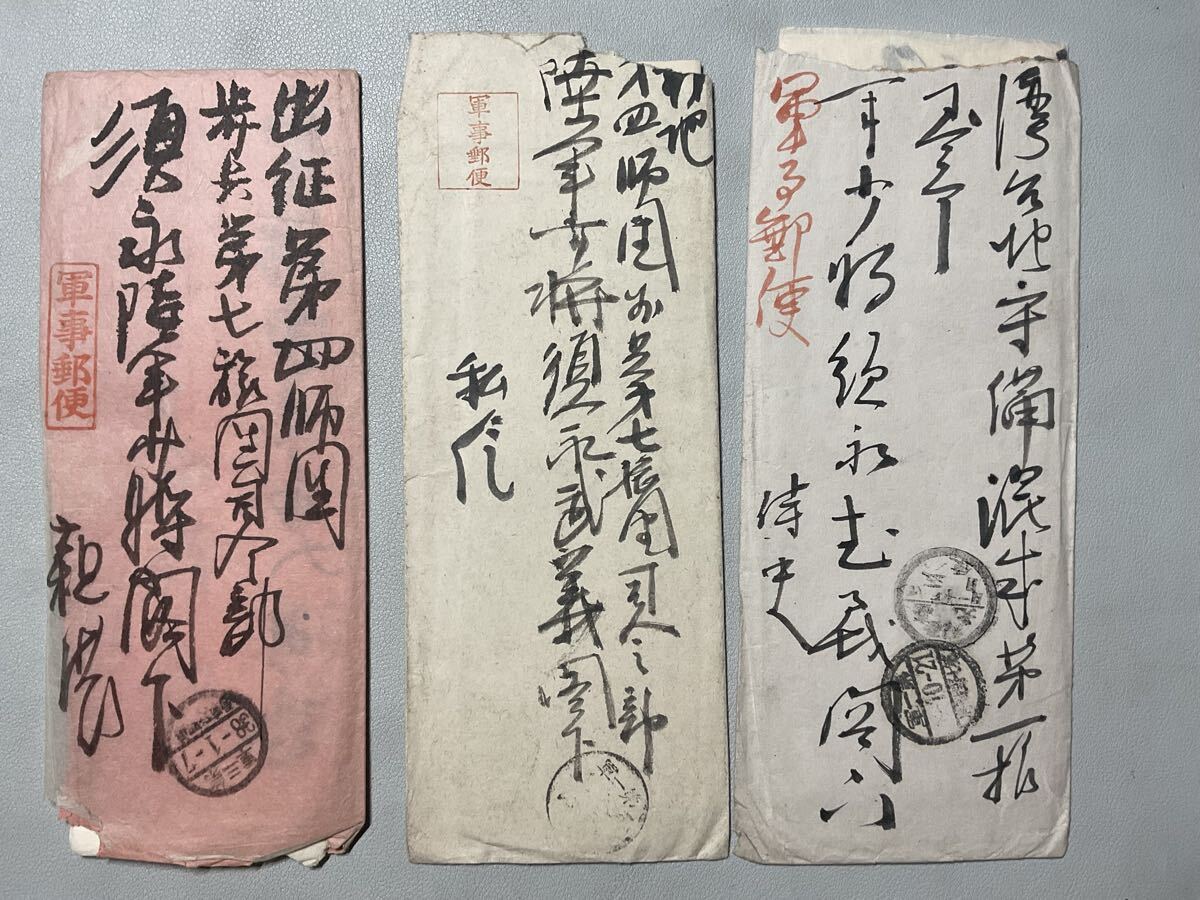 出征第四師団
歩兵第七旅団司令部
須永陸軍少将閣下
親展
軍事郵便
38-1-7
第四師団歩兵第七旅団司令部
陸軍少将須永武義閣下
私信
軍事郵便
湾台地守備混成第一旅
司令
軍事郵便
少将須永武義閣下
侍史